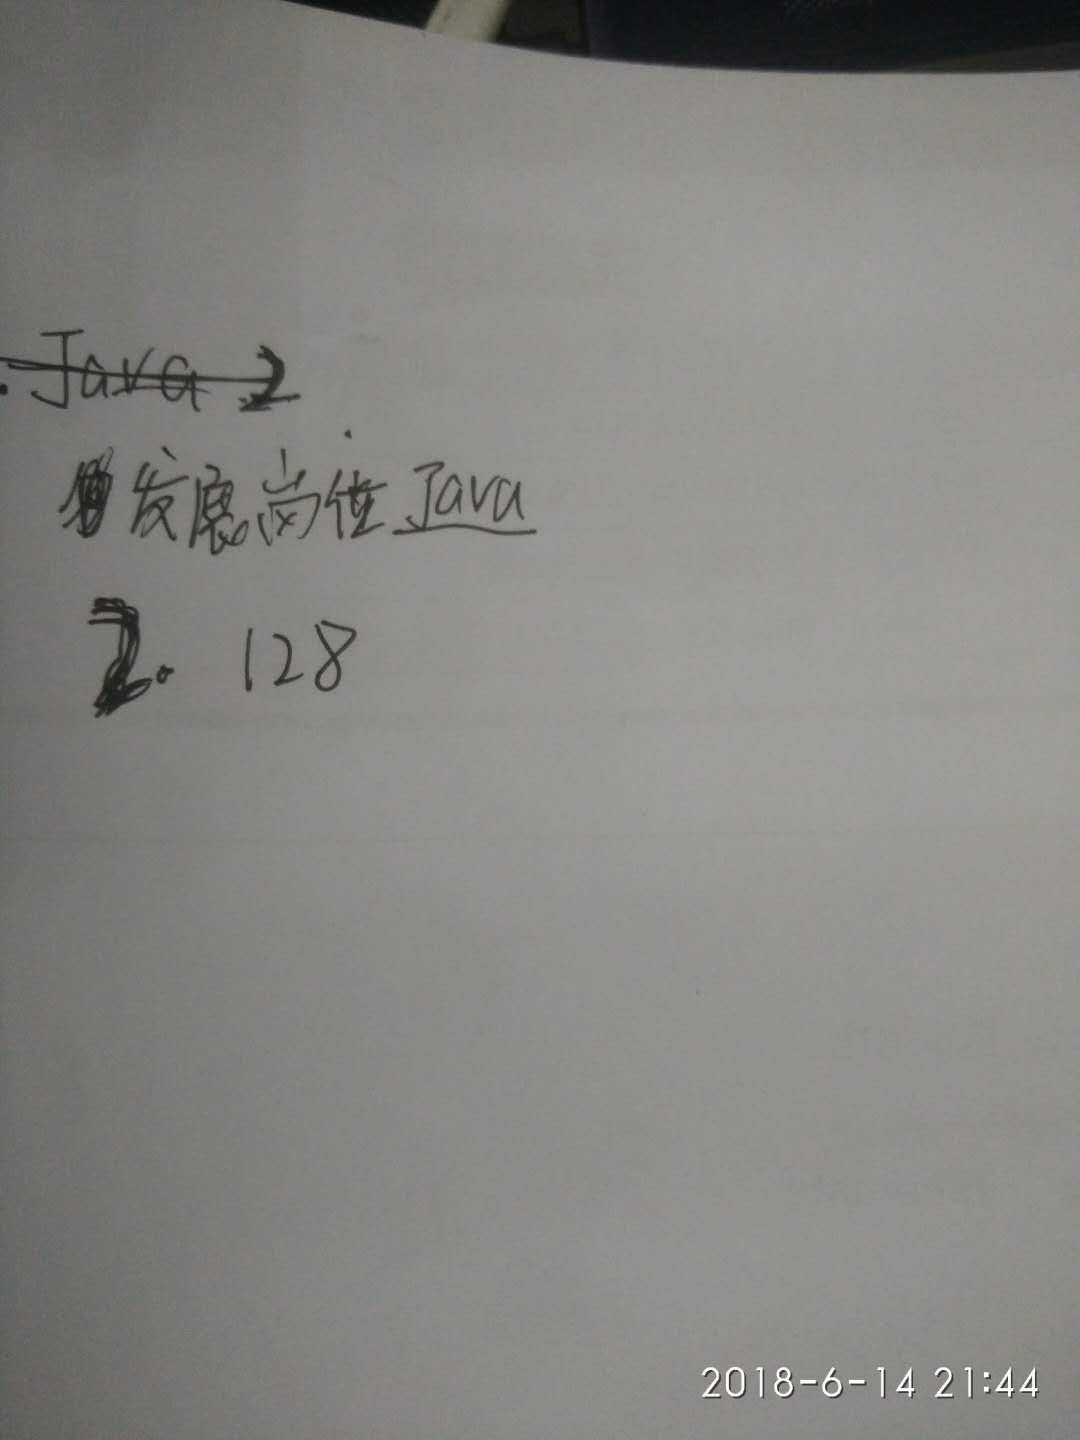 Java 2
发展岗位 Java
2. 128
2018-6-14 21:44